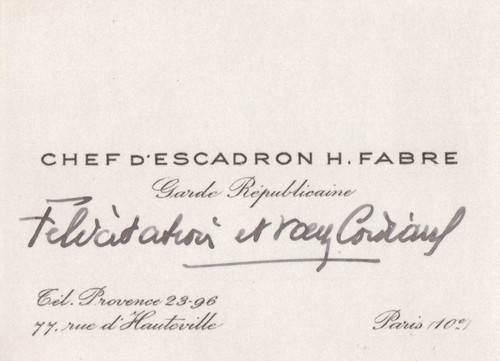 CHEF D'ESCADRON H. FABRE
Garde Républicaine
Félicitations et vœux Cordiaux
Tél. Provence 23-96
77, rue d'Hauteville
Paris (10e)